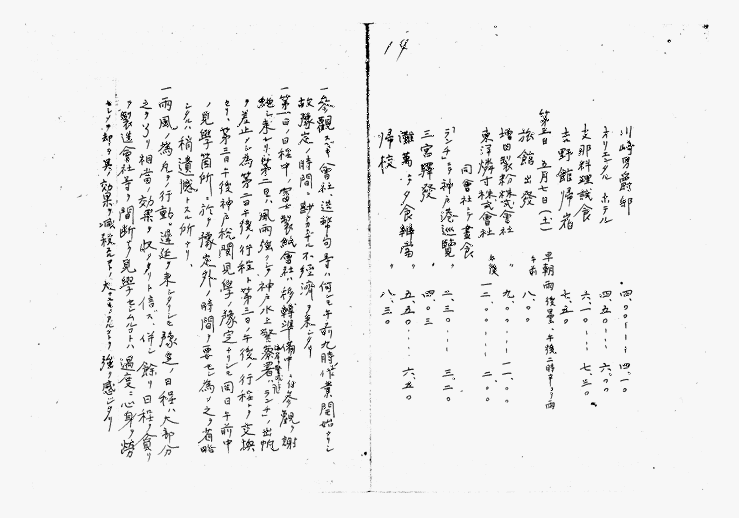 14
川崎男爵邸 四.〇〇 四.一〇
オリエンタル ホテル 四.五〇 六.〇〇
支那料理試食 六.一〇 七.三〇
吉野館帰宿 七.五〇
第三日 五月七日(土) 早朝雨後曇、午後二時半ヨリ雨
旅館出發 午前 八.〇〇
増田製粉株式會社 九.〇〇 一一.〇〇
東洋燐寸株式會社 午後 一二.〇〇 二.〇〇
同會社ニテ晝食
ランチニテ神戸港巡覽 二.三〇 三.二〇
三宮驛發 四.〇三
灘萬ニテ夕食辨當 五.五〇 六.五〇
帰校 八.三〇
一參觀スベキ會社造幣局等ハ何レモ午前九時作業開始ナリシ
故豫定ノ時間
一第一日ノ日程中、富士製紙會社ハ移轉準備中ニ付參觀ヲ謝
絶シ來レリ第二日ハ風雨強クシテ神戸水上警察署ランチノ出帆
ヲ差止メシ為第二日午後ノ行程ト第三日午後ノ行程ヲ交換
セリ、第三日午後神戸税関見學ノ豫定ナリシモ同日午前中
ノ見學箇所ニ於テ豫定外ノ時間ヲ要セシ為メ之ヲ省略
シタルハ稍遺憾トスル所ナリ
一雨風ノ為メ行動ニ遲延ヲ來シタルモ豫定ノ日程ハ大部分
之ヲ了リ相當ノ効果ヲ收メタリト信ズ、併シ餘リ日程ヲ
製造會社等ヲ間断ナク見學セシムルハ過度ニ心身ヲ勞
セシメ却テ其ノ効果ヲ減殺 強ク感ジタリ